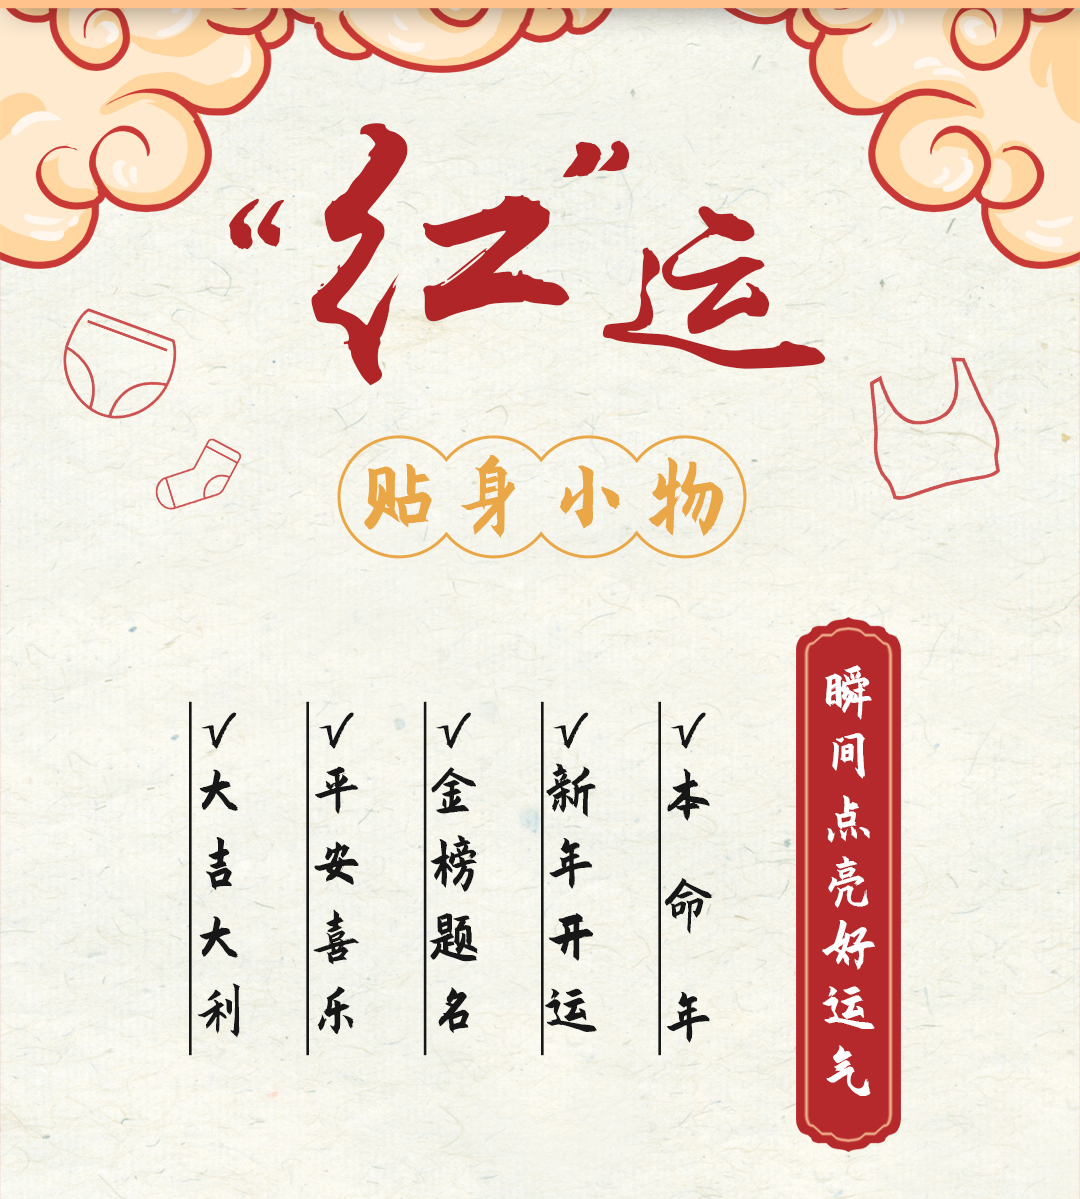 “红”运
贴身小物
瞬间点亮好运气
√本命年
√新年开运
√金榜题名
√平安喜乐
√大吉大利